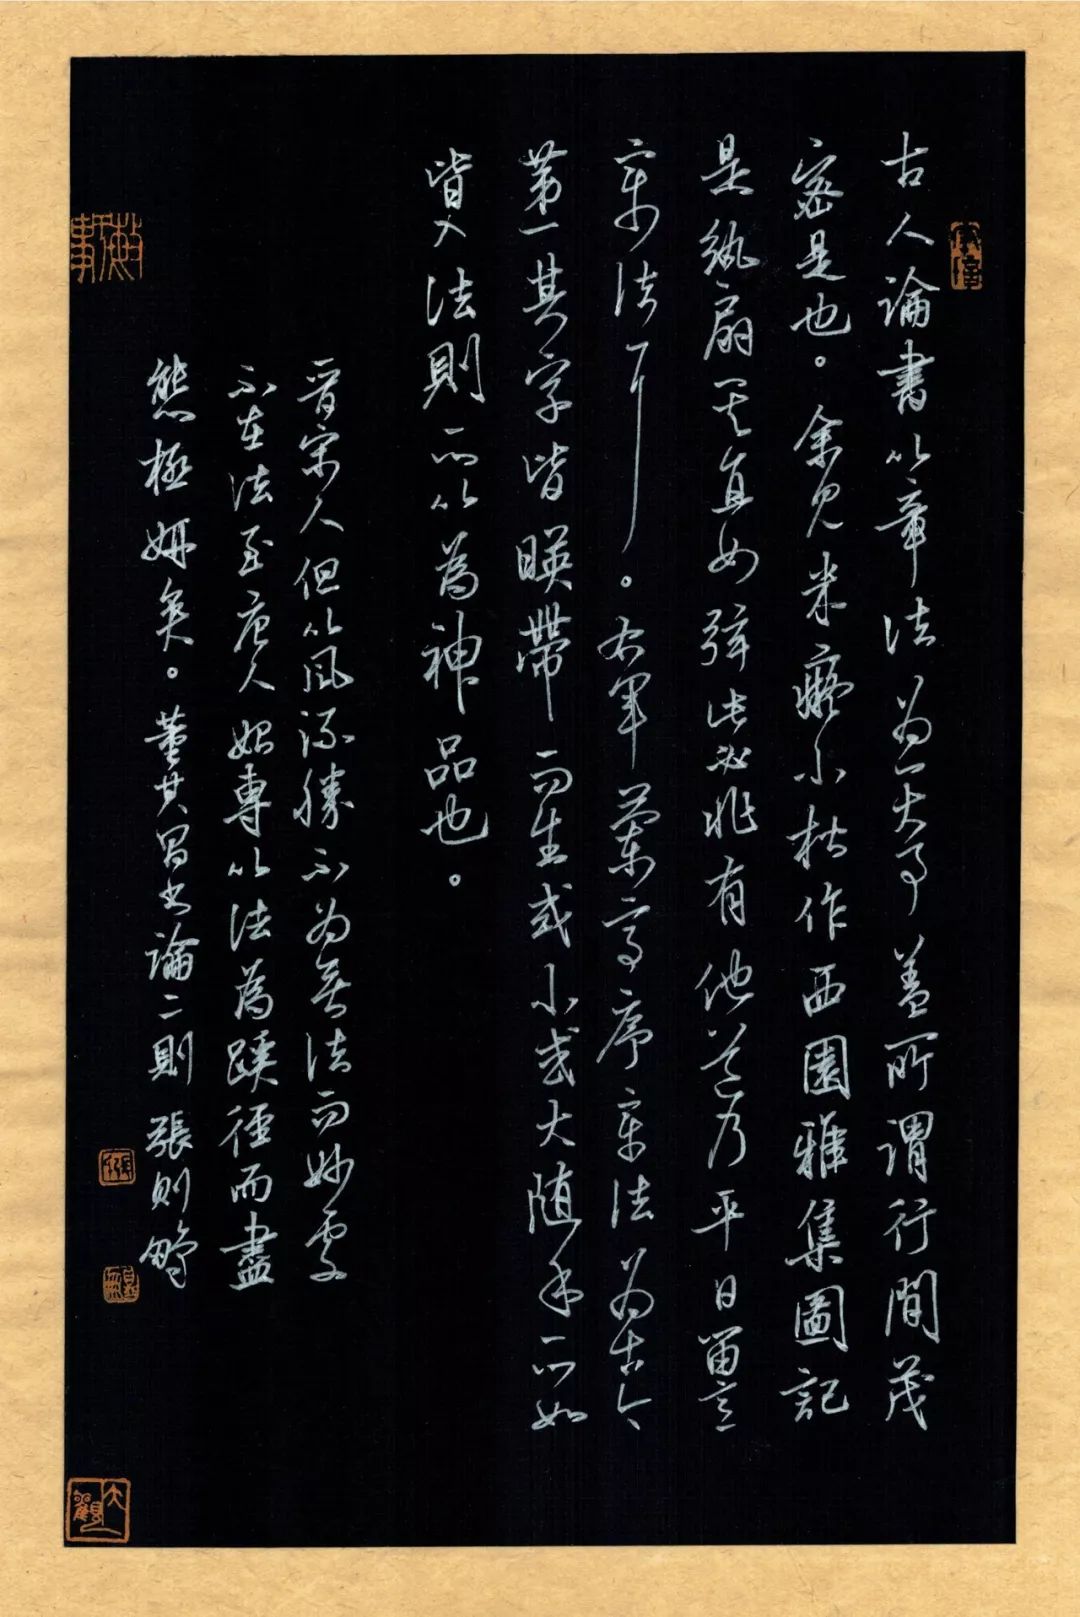 古人論書以章法為一大事蓋所謂行間茂
密是也。余見米癡小楷作西園雅集圖記
是紈扇其直如弦此必非有他道乃平日留意
章法耳。右軍蘭亭序章法為古今
第一其字皆暎帶而生或小或大随手所如
皆入法則所以為神品也。
晋宋人但以風流勝不為無法而妙處
不在法至唐人始專以法為蹊徑而盡
態極妍矣。董其昌書論二則 張則
大觀